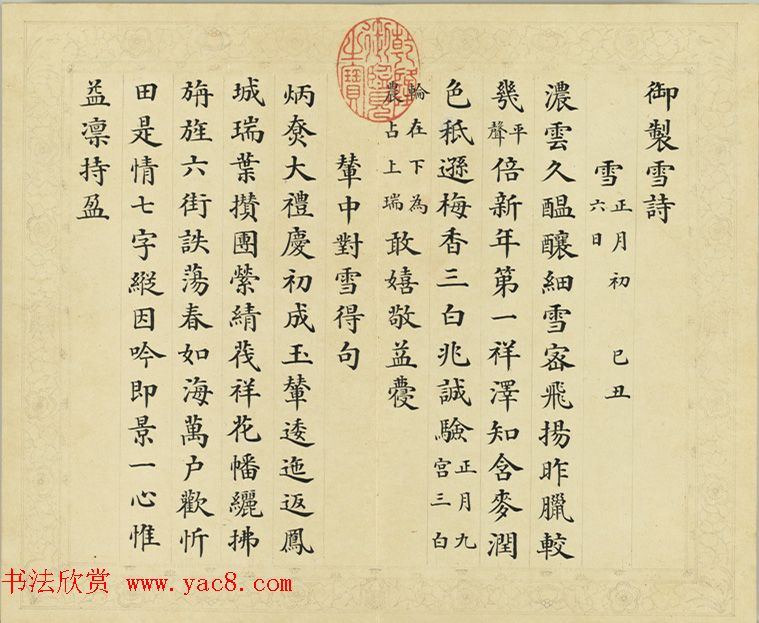 御製雪詩
雪 正月初六日 己丑
濃雲久醖釀細雪宻飛揚昨臘較
幾平聲倍新年第一祥澤知含麥潤
色秖遜梅香三白兆誠驗正月九宫三白
輪在下為農占上瑞敢嬉敬益蘉
輦中對雪得句
炳尞大禮慶初成玉輦逶迤返鳳
城瑞葉攢團縈綪茷祥花幡纚拂
旃旌六街詄蕩春如海萬户歡忻
田是情七字縱因吟即景一心惟
益凛持盈
乾隆御覽之寶
书法欣赏 www.yac8.com